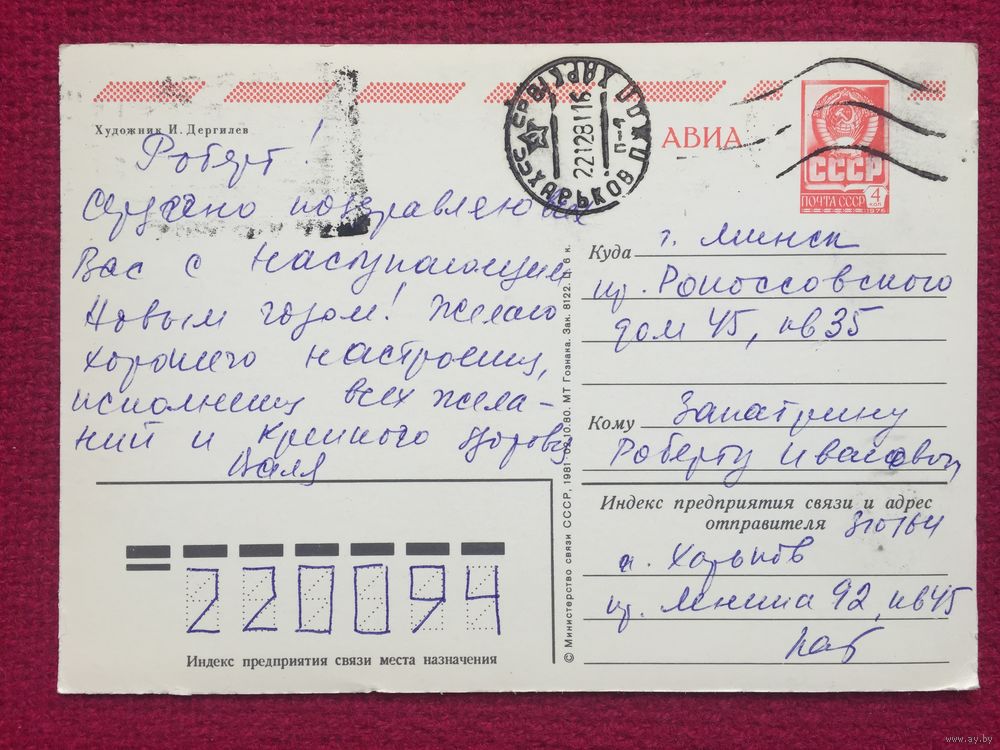 Художник И. Дергилев
Роберт!
Сердечно поздравляю
Вас с наступающим
Новым годом! Желаю
хорошего настроения,
исполнения всех жела-
ний и крепкого здоровья
Валя
АВИА
СССР
ПОЧТА СССР
4 коп
1976
ХАРЬКОВ
221281 16
П-1
Куда г. Минск
пр. Рокоссовского
дом 45, кв 35
Кому Запатрину
Роберту Ивановичу
Индекс предприятия связи и адрес
отправителя 310164
г. Харьков
пр. Ленина 92, кв 45
© Министерство связи СССР, 1981. 02.10.80. МТ Гознака. Зак. 8122. Ц. 6 к.
220094
Индекс предприятия связи места назначения
www.ay.by